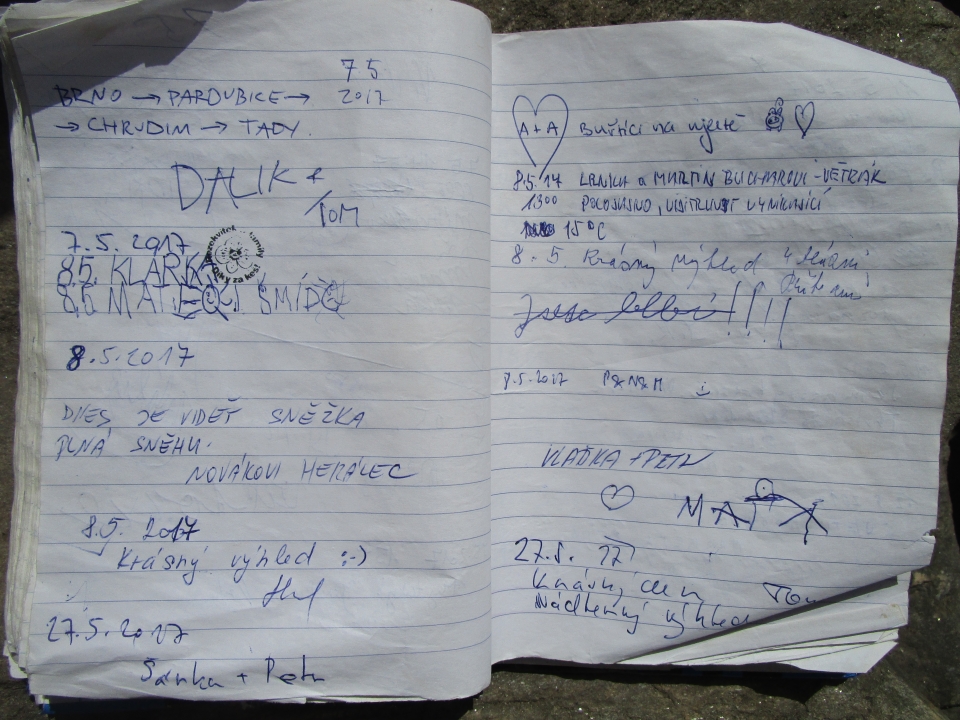 7 5
BRNO → PARDUBICE → 2017
→ CHRUDIM → TADY.
DALIK +
TOM
7.5.2017
8.5. KLÁRKA
8.5 MATĚJ ŠMÍD
8.5.2017
DNES JE VIDĚT SNĚŽKA
PLNÁ SNĚHU.
NOVÁKOVI HERÁLEC
8.5. 2017
Krásný výhled :-)
27.5.2017
Šárka + Petr
A + A na výletě
8.5.17 LENKA a MARTIN
1300 POLOJASNO, VIDITELNOST VYNIKAJÍCÍ
15°C
8. 5. Krásný výhled
Jsme blbí!!!!
8.5.2017 P&N&M
VLAĎKA + PETR
MAT
27.5. 17
Krásný den Tom
Nádherný výhled